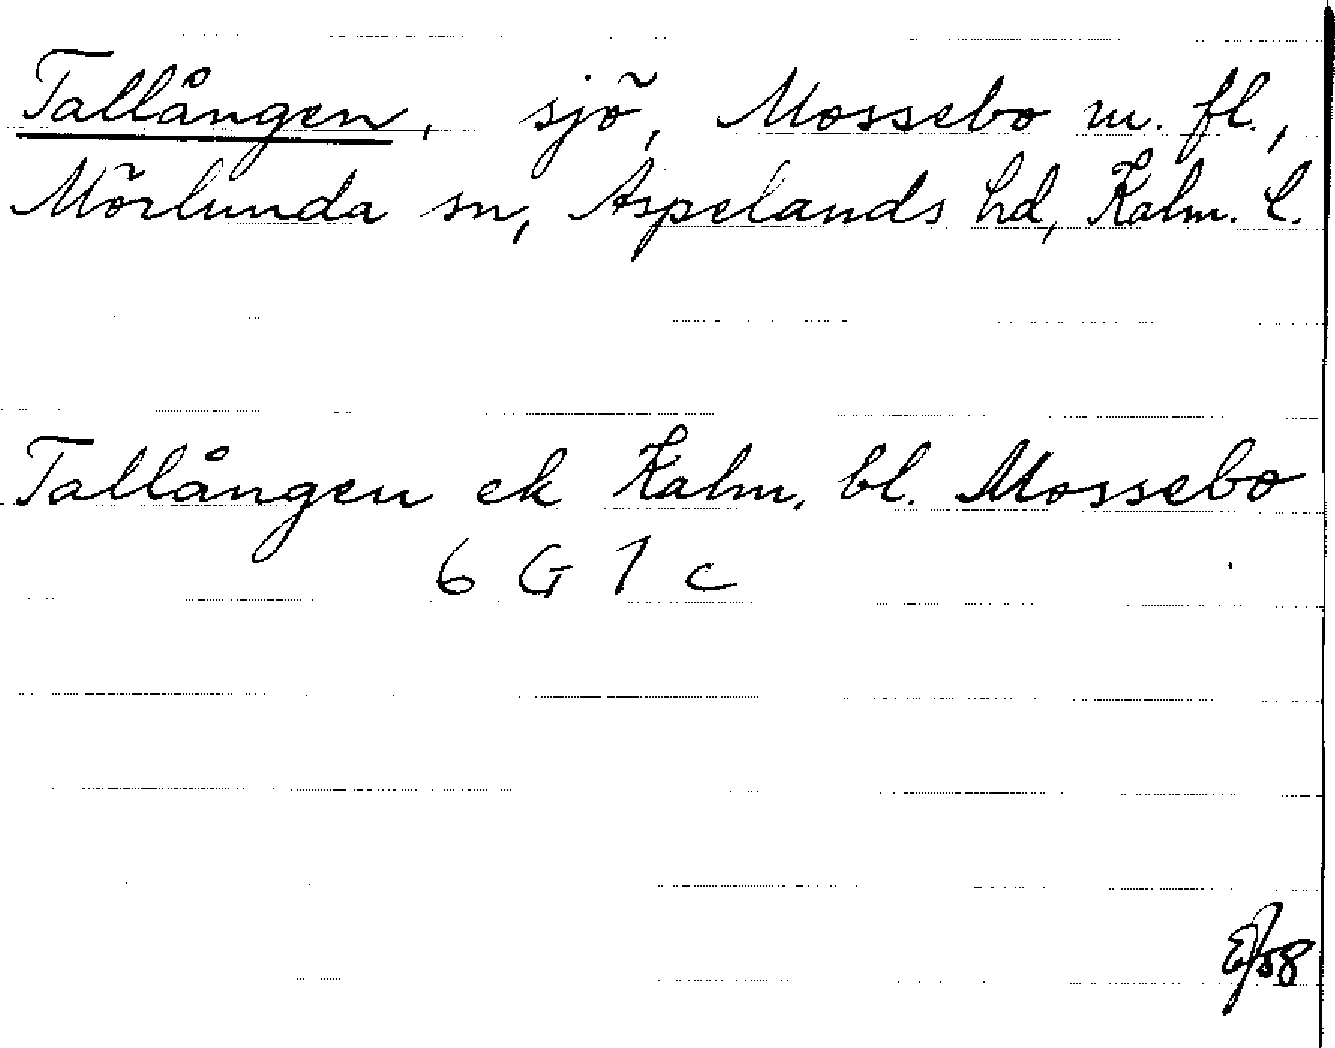 Tallången, sjö, Mossebo m. fl.,
Mörlunda sn, Aspelands hd, Kalm. l.
Tallången ek Kalm. bl. Mossebo
6 G 1 c
/58